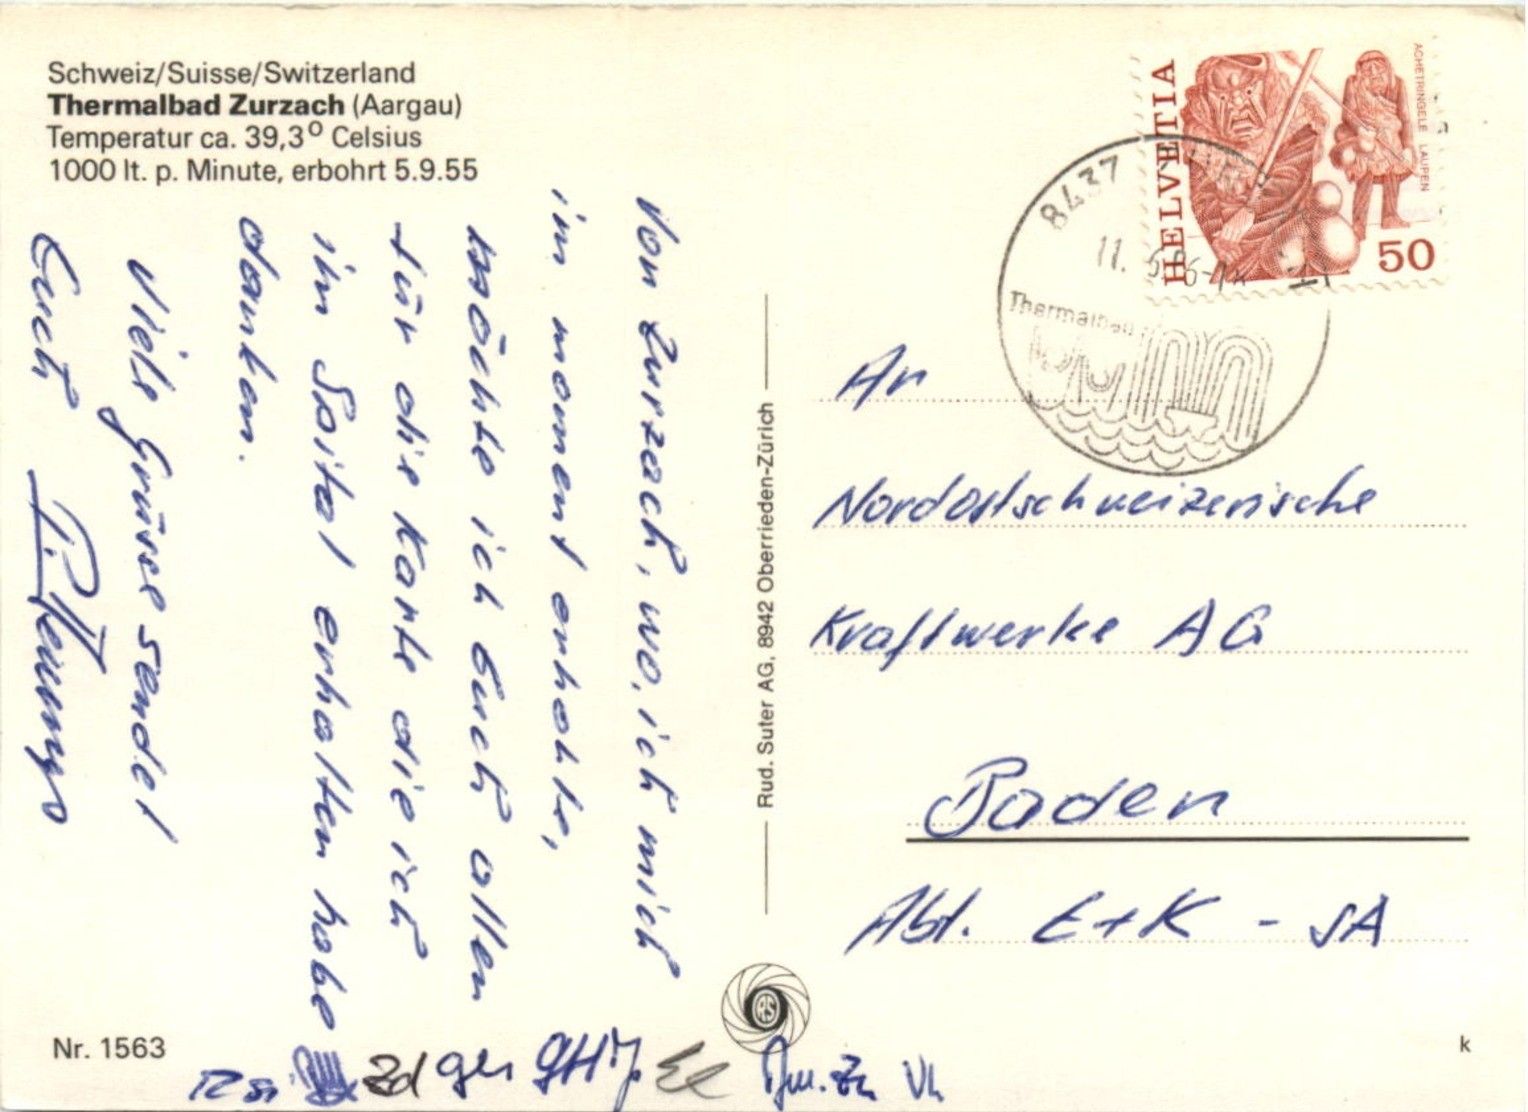 Schweiz/Suisse/Switzerland
Thermalbad Zurzach (Aargau)
Temperatur ca. 39,3° Celsius
1000 lt. p. Minute, erbohrt 5.9.55
Von Zurzach, wo, ich mich
im moment erhohle,
möchte ich Euch allen
für die Karte die ich
im Spital erhalten habe
danken.
Viele Grüsse sendet
Euch
Rud. Suter AG, 8942 Oberrieden-Zürich
HELVETIA
ACHETRINGELE LAUPEN
50
8437
11. 6
Thermalbad
An
Nordostschweizerische
Kraftwerke AG
Baden
Abt. E+K - SA
Nr. 1563
k
Zd